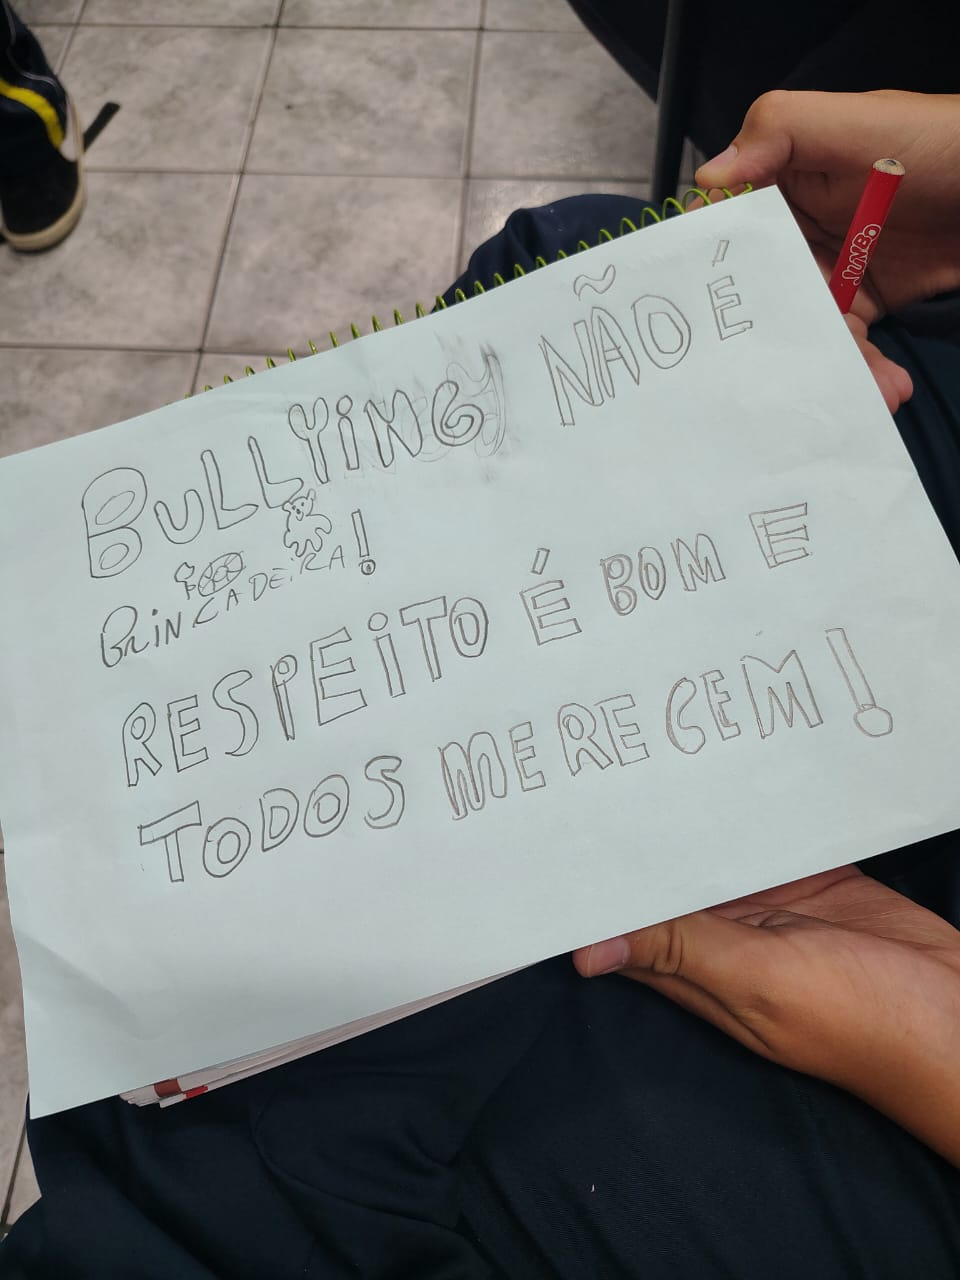 BULLYiNG NÃO É
BRiNCADEiRA!
RESPEiTO É BOM E
TODOS MERECEM!
JUMBO